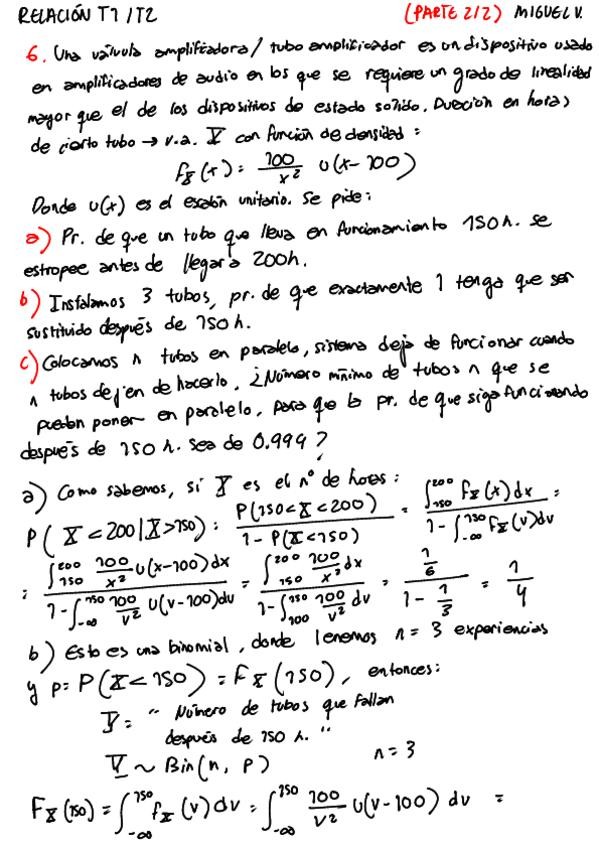 RELACIÓN T1/T2 (PARTE 2/2) MIGUEL V.
6. Una válvula amplificadora/tubo amplificador es un dispositivo usado
en amplificadores de audio en los que se requiere un grado de linealidad
mayor que el de los dispositivos de estado solido. Duración en horas
de cierto tubo → v.a. X con función de densidad:
f_X(x) = 100/x² u(x-100)
Donde u(x) es el escalón unitario. Se pide:
a) Pr. de que un tubo que lleva en funcionamiento 150h. se
estropee antes de llegar a 200h.
b) Instalamos 3 tubos, pr. de que exactamente 1 tenga que ser
sustituido después de 150h.
c) Colocamos n tubos en paralelo, sistema deja de funcionar cuando
n tubos dejen de hacerlo. ¿Número mínimo de tubos n que se
pueden poner en paralelo, para que la pr. de que siga funcionando
después de 150 h. sea de 0.999?
a) Como sabemos, si X es el nº de horas:
P(X<200|X>150) = P(150<X<200) / (1-P(X<150)) = ∫_150^200 f_X(x)dx / (1-∫_-∞^150 f_X(v)dv) =
= ∫_150^200 100/x² u(x-100)dx / (1-∫_-∞^150 100/v² u(v-100)dv) = ∫_150^200 100/x² dx / (1-∫_100^150 100/v² dv) = (1/6) / (1-1/3) = 1/4
b) Esto es una binomial, donde tenemos n=3 experiencias
y p = P(X<150) = F_X(150), entonces:
Y = "Número de tubos que fallan
después de 150 h."
Y ~ Bin(n, p) n=3
F_X(150) = ∫_-∞^150 f_X(v)dv = ∫_-∞^150 100/v² u(v-100) dv =